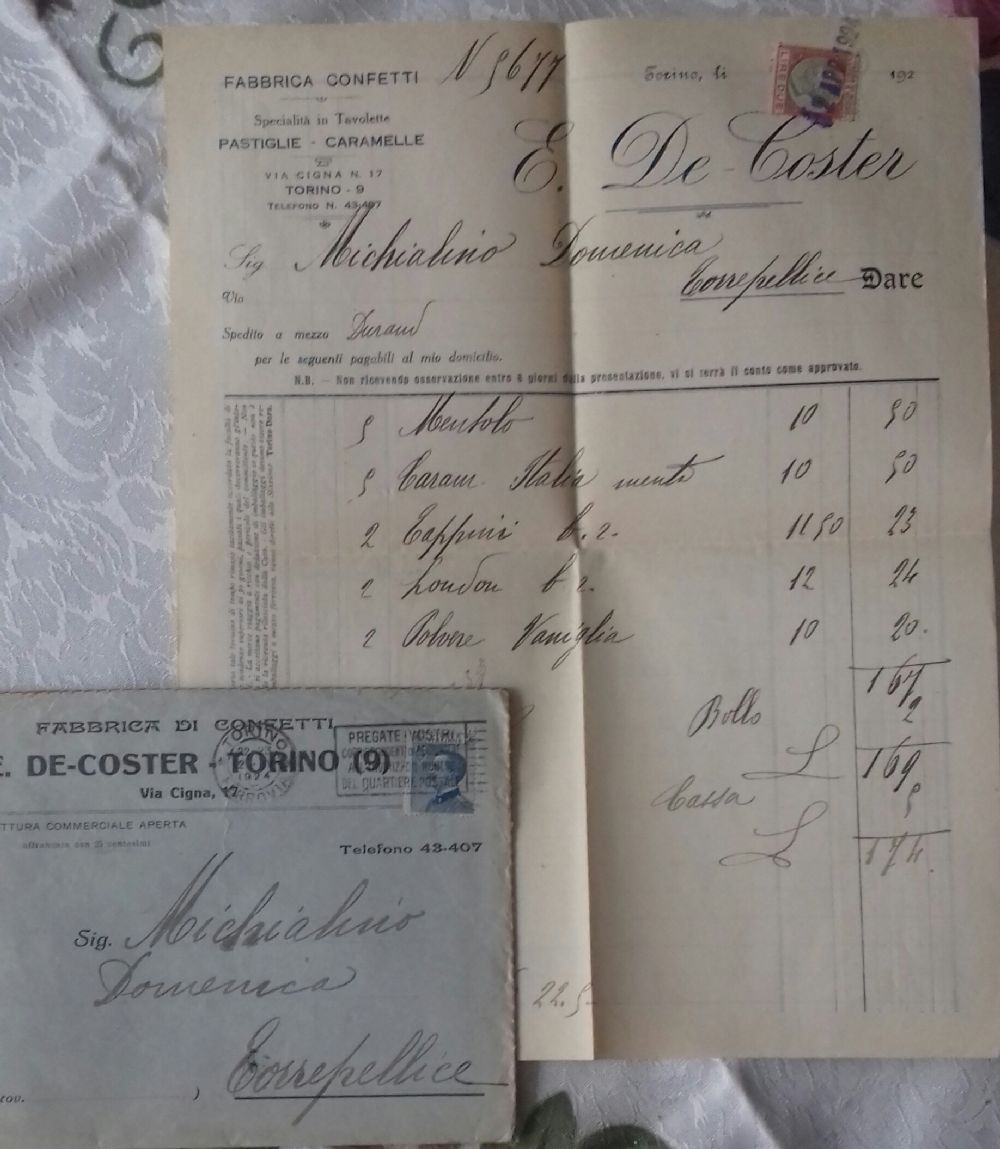 FABBRICA CONFETTI
N 5677
Torino, li 192
LIRE DUE
Specialità in Tavolette
PASTIGLIE - CARAMELLE
VIA CIGNA N. 17
TORINO - 9
TELEFONO N. 43-407
E. De-Coster
Sig Michialino Domenica
Torrepellice Dare
Via
Spedito a mezzo Durand
per le seguenti pagabili al mio domicilio.
N.B. - Non ricevendo osservazione entro 8 giorni dalla presentazione, vi si terrà il conto come approvato.
5 Mentolo 10 50
5 Caram. Italia menta 10 50
2 Tappini b. r. 11 50 23
2 London b r. 12 24
2 Polvere Vaniglia 10 20.
167
Bollo 2
L 169
Cassa 5
L 174.
22.5
FABBRICA DI CONFETTI
E. DE-COSTER - TORINO (9)
Via Cigna, 17
TORINO
1924
FERROVIA
PREGATE I VOSTRI
DEL QUARTIERE POSTALE
TTURA COMMERCIALE APERTA
affrancata con 25 centesimi
Telefono 43-407
Sig. Michialino
Domenica
Torrepellice
rov. )